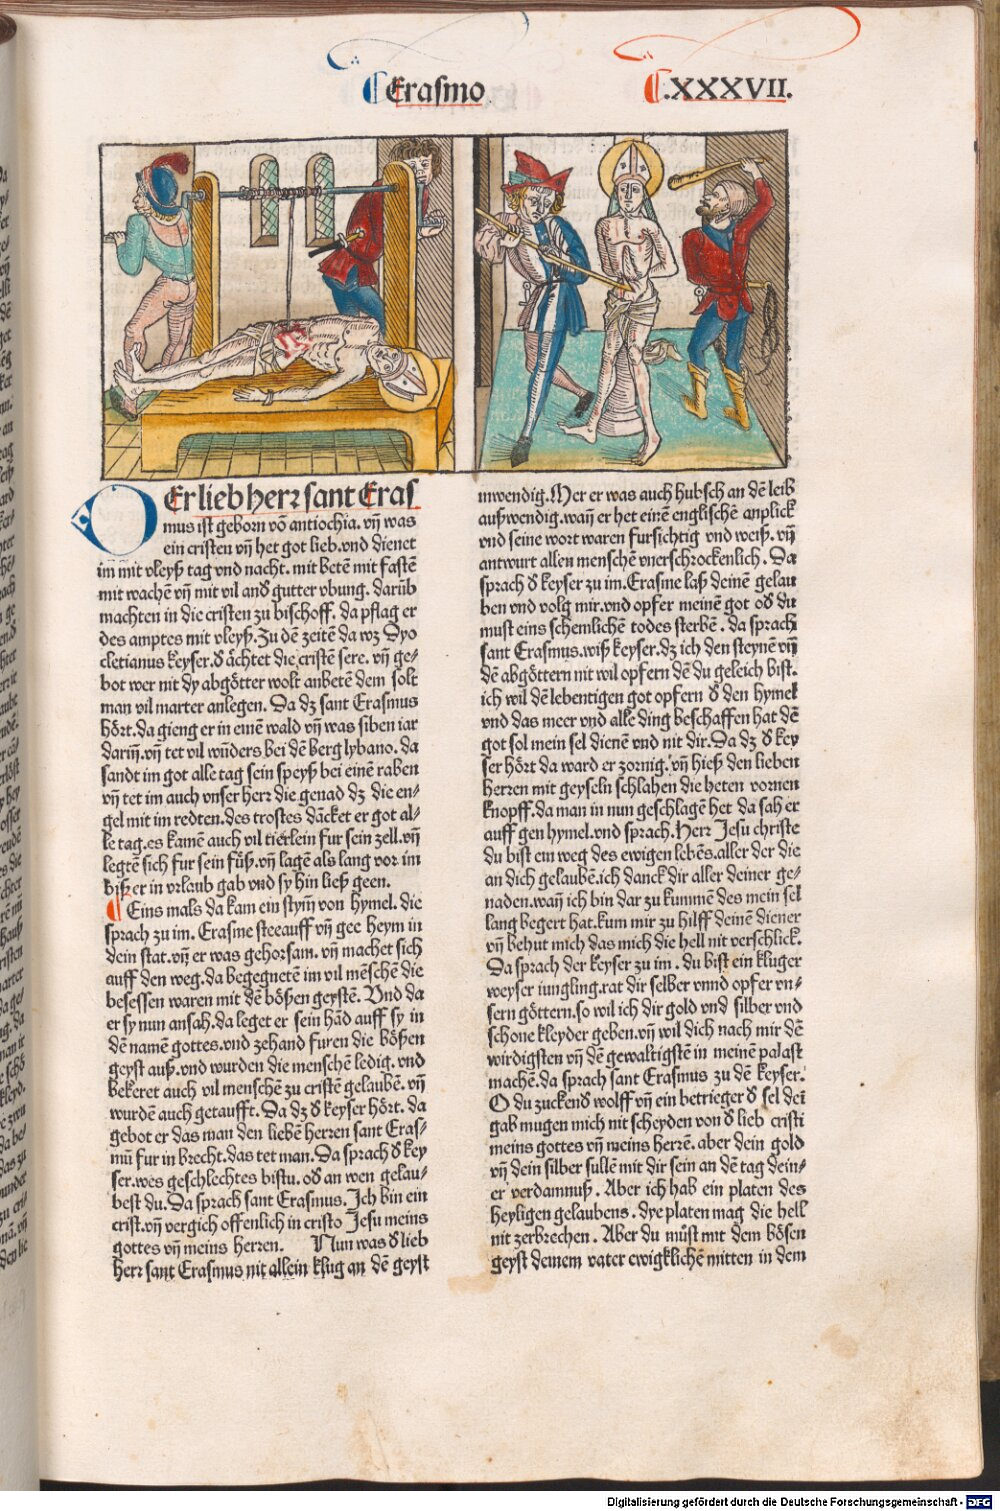 Erasmo
.XXXVII.
DEr lieb herr sant Eras
mus ist geborn vō antiochia. vn̄ was
ein cristen vn̄ het got lieb. vnd dienet
im mit vleyß tag vnd nacht. mit betē mit fastē
mit wachē vn̄ mit vil and̓ gutter vbung. darūb
machten in die cristen zu bischoff. da pflag er
des amptes mit vleyß. Zu dē zeitē da wz Dyo
cletianus keyser. d̓ ächtet die cristē sere. vn̄ ge-
bot wer nit dy abgötter wolt anbetē dem solt
man vil marter anlegen. Da dz sant Erasmus
hört. da gieng er in einē wald vn̄ was siben iar
dariñ. vn̄ tet vil wūders bei dē berg lybano. da
sandt im got alle tag sein speyß bei einē raben
vn̄ tet im auch vnser herr die genad dz die en-
gel mit im redten. des trostes dācket er got al-
le tag. es kamē auch vil tierlein fur sein zell. vn̄
legtē sich fur sein fůß. vn̄ lagē als lang vor im
biß er in vrlaub gab vnd sy hin ließ geen.
Eins mals da kam ein stym̄ von hymel. die
sprach zu im. Erasme stee auff vn̄ gee heym in
dein stat. vn̄ er was gehorsam. vn̄ machet sich
auff den weg. da begegnetē im vil mēschē die
besessen waren mit dē bößen geystē. Vnd da
er sy nun ansah. da leget er sein hād auff sy in
dē namē gottes. vnd zehand furen die bößen
geyst auß. vnd wurden die menschē ledig. vnd
bekeret auch vil menschē zu cristē gelaubē. vn̄
wurdē auch getaufft. Da dz d̓ keyser hört. da
gebot er das man den liebē herren sant Eras-
mū fur in brecht. das tet man. Da sprach d̓ key
ser. wes geschlechtes bistu. od̓ an wen gelau-
best du. Da sprach sant Erasmus. Ich bin ein
crist. vn̄ vergich offenlich in cristo Jesu meins
gottes vn̄ meins herren. Nun was d̓ lieb
herr sant Erasmus nit allein klug an dē geyst
inwendig. Mer er was auch hubsch an dē leib
außwendig. wañ er het einē englischē anplick
vnd seine wort waren fursichtig vnd weiß. vn̄
antwurt allen menschē vnerschrockenlich. Da
sprach d̓ keyser zu im. Erasme laß deinē gelau
ben vnd volg mir. vnd opfer meinē got od̓ du
must eins schemlichē todes sterbē. da sprach
sant Erasmus. wiß keyser. dz ich den steynē vn̄
dē abgöttern nit wil opfern dē du geleich bist.
ich wil dē lebentigen got opfern d̓ den hymel
vnd das meer vnd alle ding beschaffen hat dē
got sol mein sel dienē vnd nit dir. Da dz d̓ key
ser hört da ward er zornig. vn̄ hieß den lieben
herren mit geyseln schlahen die heten vornen
knopff. da man in nun geschlagē het da sah er
auff gen hymel. vnd sprach. Herr Jesu christe
du bist ein weg des ewigen lebēs. aller der die
an dich gelaubē. ich danck dir aller deiner ge-
naden. wañ ich bin dar zu kummē des mein sel
lang begert hat. kum mir zu hilff deinē diener
vn̄ behut mich das mich die hell nit verschlick.
Da sprach der keyser zu im. du bist ein kluger
weyser iungling. rat dir selber vnnd opfer vn-
sern göttern. so wil ich dir gold vnd silber vnd
schone kleyder geben. vn̄ wil dich nach mir dē
wirdigsten vn̄ dē gewaltigstē in meinē palast
machē. da sprach sant Erasmus zu dē keyser.
O du zuckend̓ wolff vn̄ ein betrieger d̓ sel dei
gab mugen mich nit scheyden von d̓ lieb cristi
meins gottes vn̄ meins herrē. aber dein gold
vn̄ dein silber sullē mit dir sein an dē tag dein-
er verdamnuß. Aber ich hab ein platen des
heyligen gelaubens. dye platen mag die hell
nit zerbrechen. Aber du můst mit dem bösen
geyst deinem vater ewigklichē mitten in dem
Digitalisierung gefördert durch die Deutsche Forschungsgemeinschaft - DFG